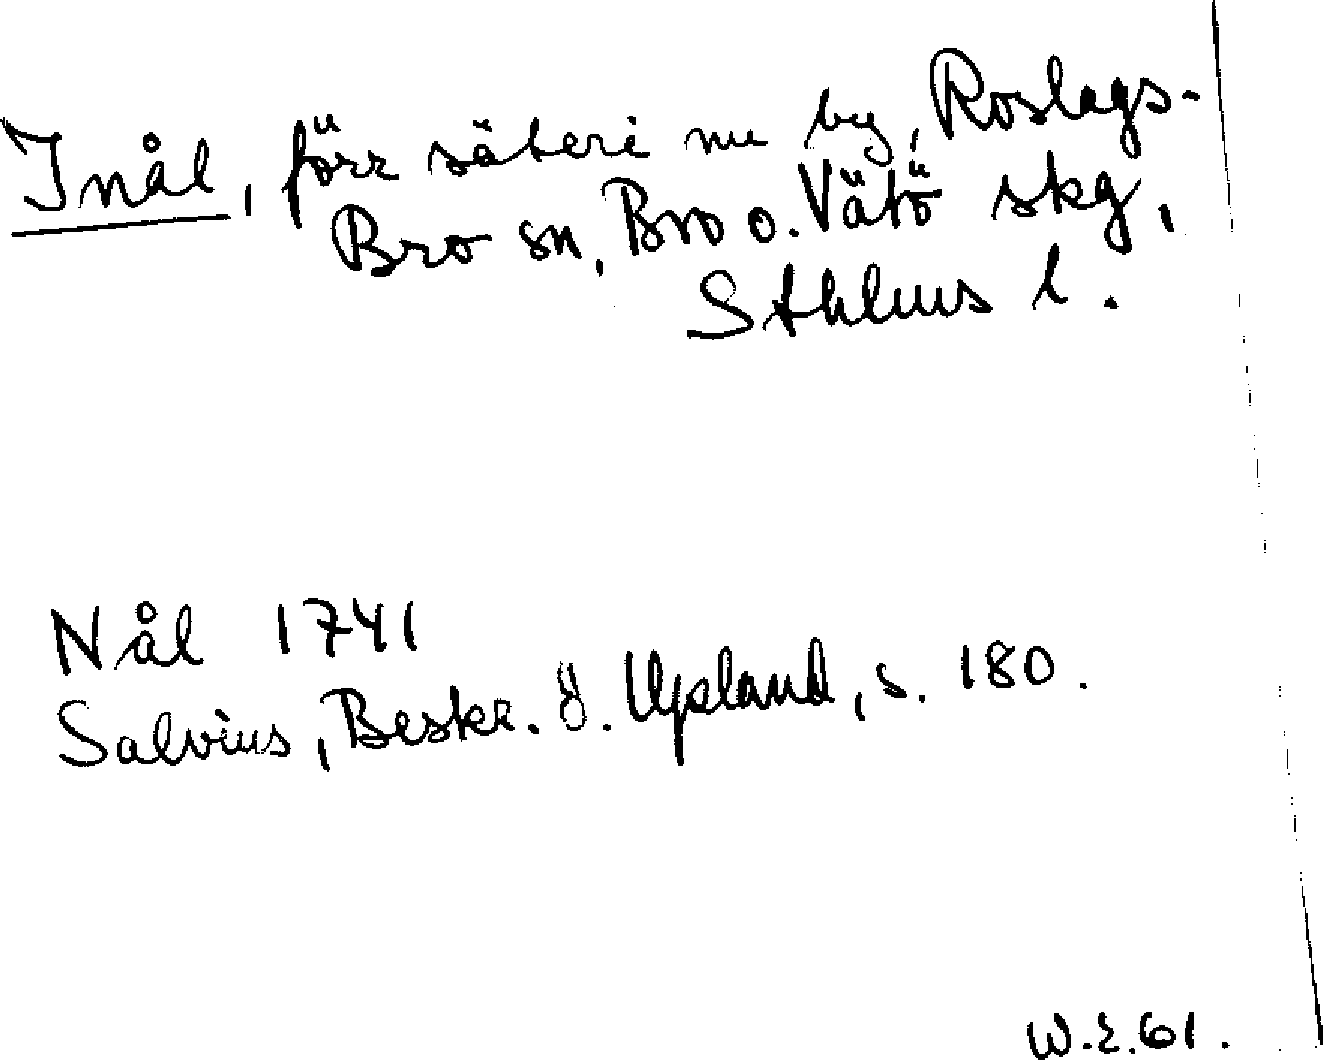 Inål, förr säteri nu by, Roslags-
Bro sn, Bro o. Vätö skg,
Sthlms l.
Nål 1741
Salvius, Beskr. ö. Upland, s. 180.
W.E.61.